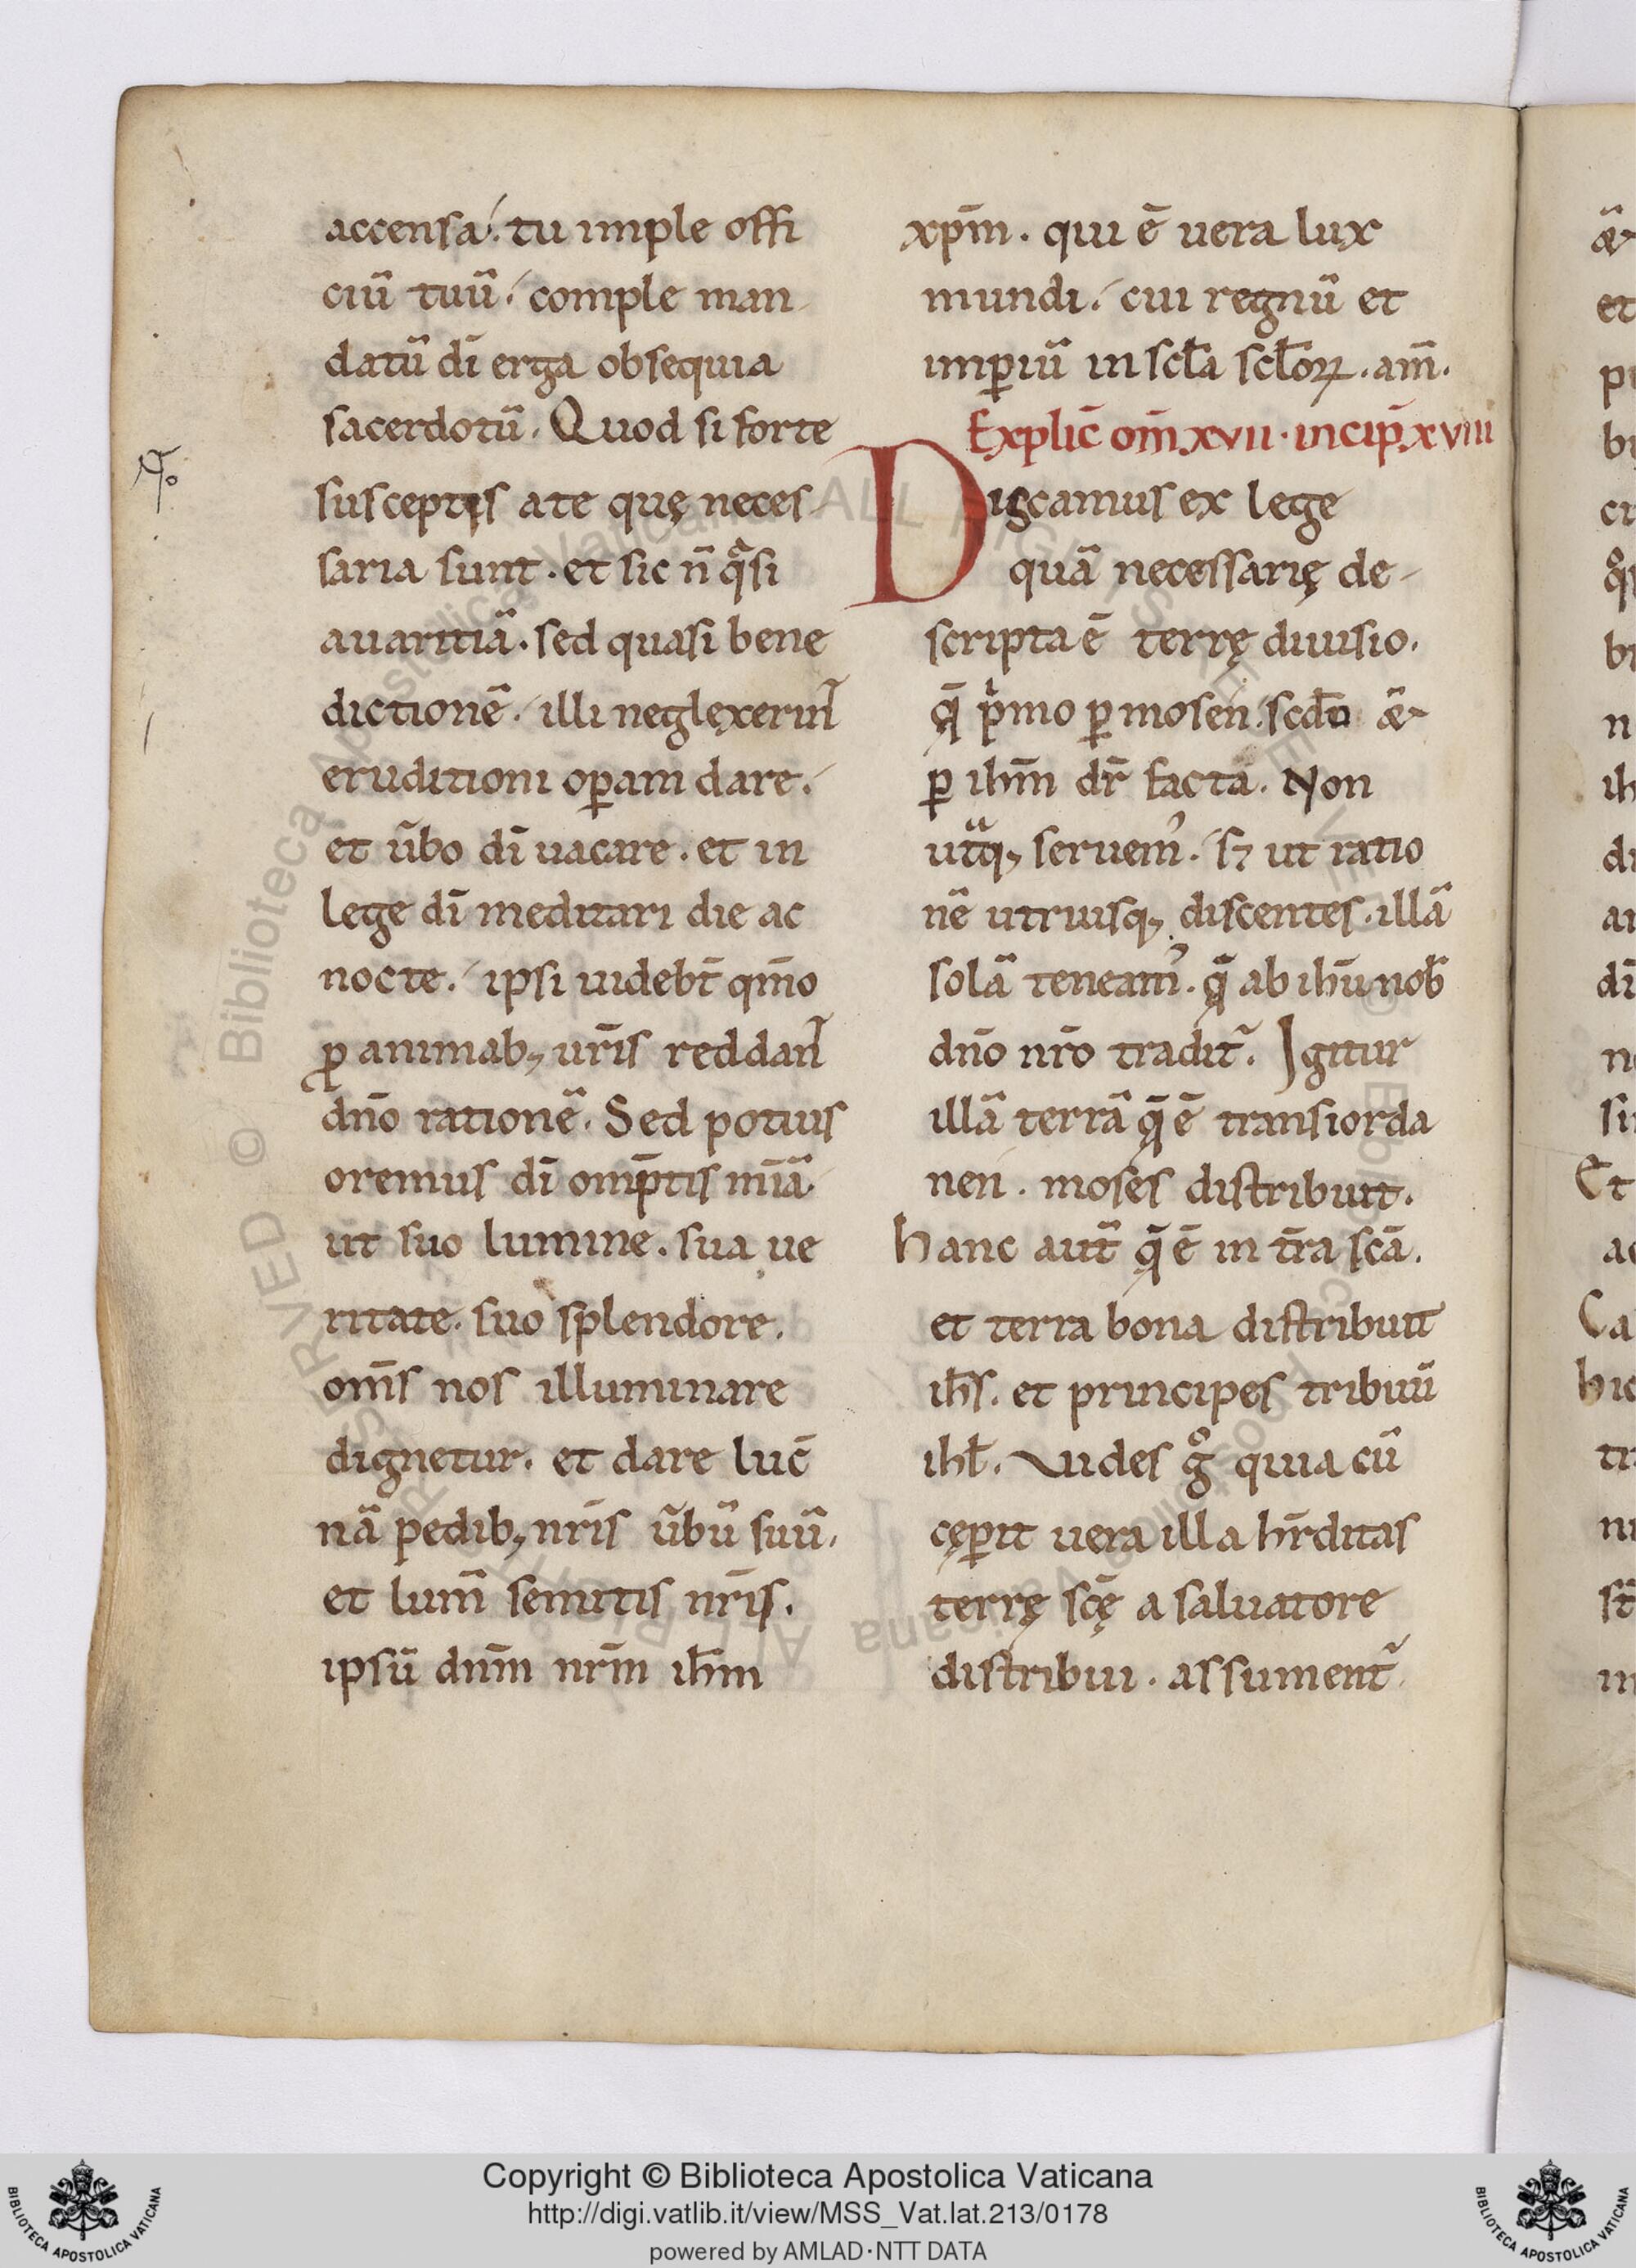 accensa. tu imple offi
ciũ tuũ. comple man
datũ dī erga obsequia
sacerdotũ. Quod si forte
susceptis ate quę neces
saria sunt. et sic n̄ qᵃsi
auaritiã. sed quasi bene
dictionẽ. illi neglexerin̄t
eruditioni oꝑam dare.
et ũbo dī uacare. et in
lege dī meditari die ac
nocte. ipsi uidebt̄ qm̄o
ꝓ animabꝫ ur̄is reddan̄t
dn̄o rationẽ. Sed potius
oremus dī omp̄tis mīã
ut suo lumine. sua ue
ritate. suo splendore.
om̄s nos illuminare
dignetur. et dare luc̄
nã pedibꝫ nr̄is ũbũ suũ.
et lum̄ semitis nr̄is.
ipsũ dnm̄ nrm̄ ih̄m
xpm̄. qui ē uera lux
mundi. cui regnũ et
imꝑiũ in scl̄a scl̄oꝝ. am̄.
Explic̄ om̄ xvii. incip̄ xviii
Discamus ex lege
quã necessarię de-
scripta ē terrę diuisio.
q̄ pⁱmo ꝑ mosen. scd̄o
ꝑ ih̄m dr̄ facta. Non
utᵃqꝫ seruem᾽. sꝫ ut ratio
nẽ utriusqꝫ discentes. illã
solã teneam᾽. q̄ ab ih̄u nob̄
dn̄o nr̄o tradit᷑. Igitur
illã terrã q̄ ē transiorda
nen. moses distribuit.
hanc aut̄ q̄ ē in t̄ra sc̄a.
et terra bona distribuit
ih̄s. et principes tribuũ
ihl̄. Vides gᵒ quia cũ
cęꝑit uera illa hr̄ditas
terrę sc̄ę a saluatore
distribui. assument᷑
Copyright © Biblioteca Apostolica Vaticana
http://digi.vatlib.it/view/MSS_Vat.lat.213/0178
powered by AMLAD·NTT DATA
BIBLIOTECA APOSTOLICA VATICANA
BIBLIOTECA APOSTOLICA VATICANA